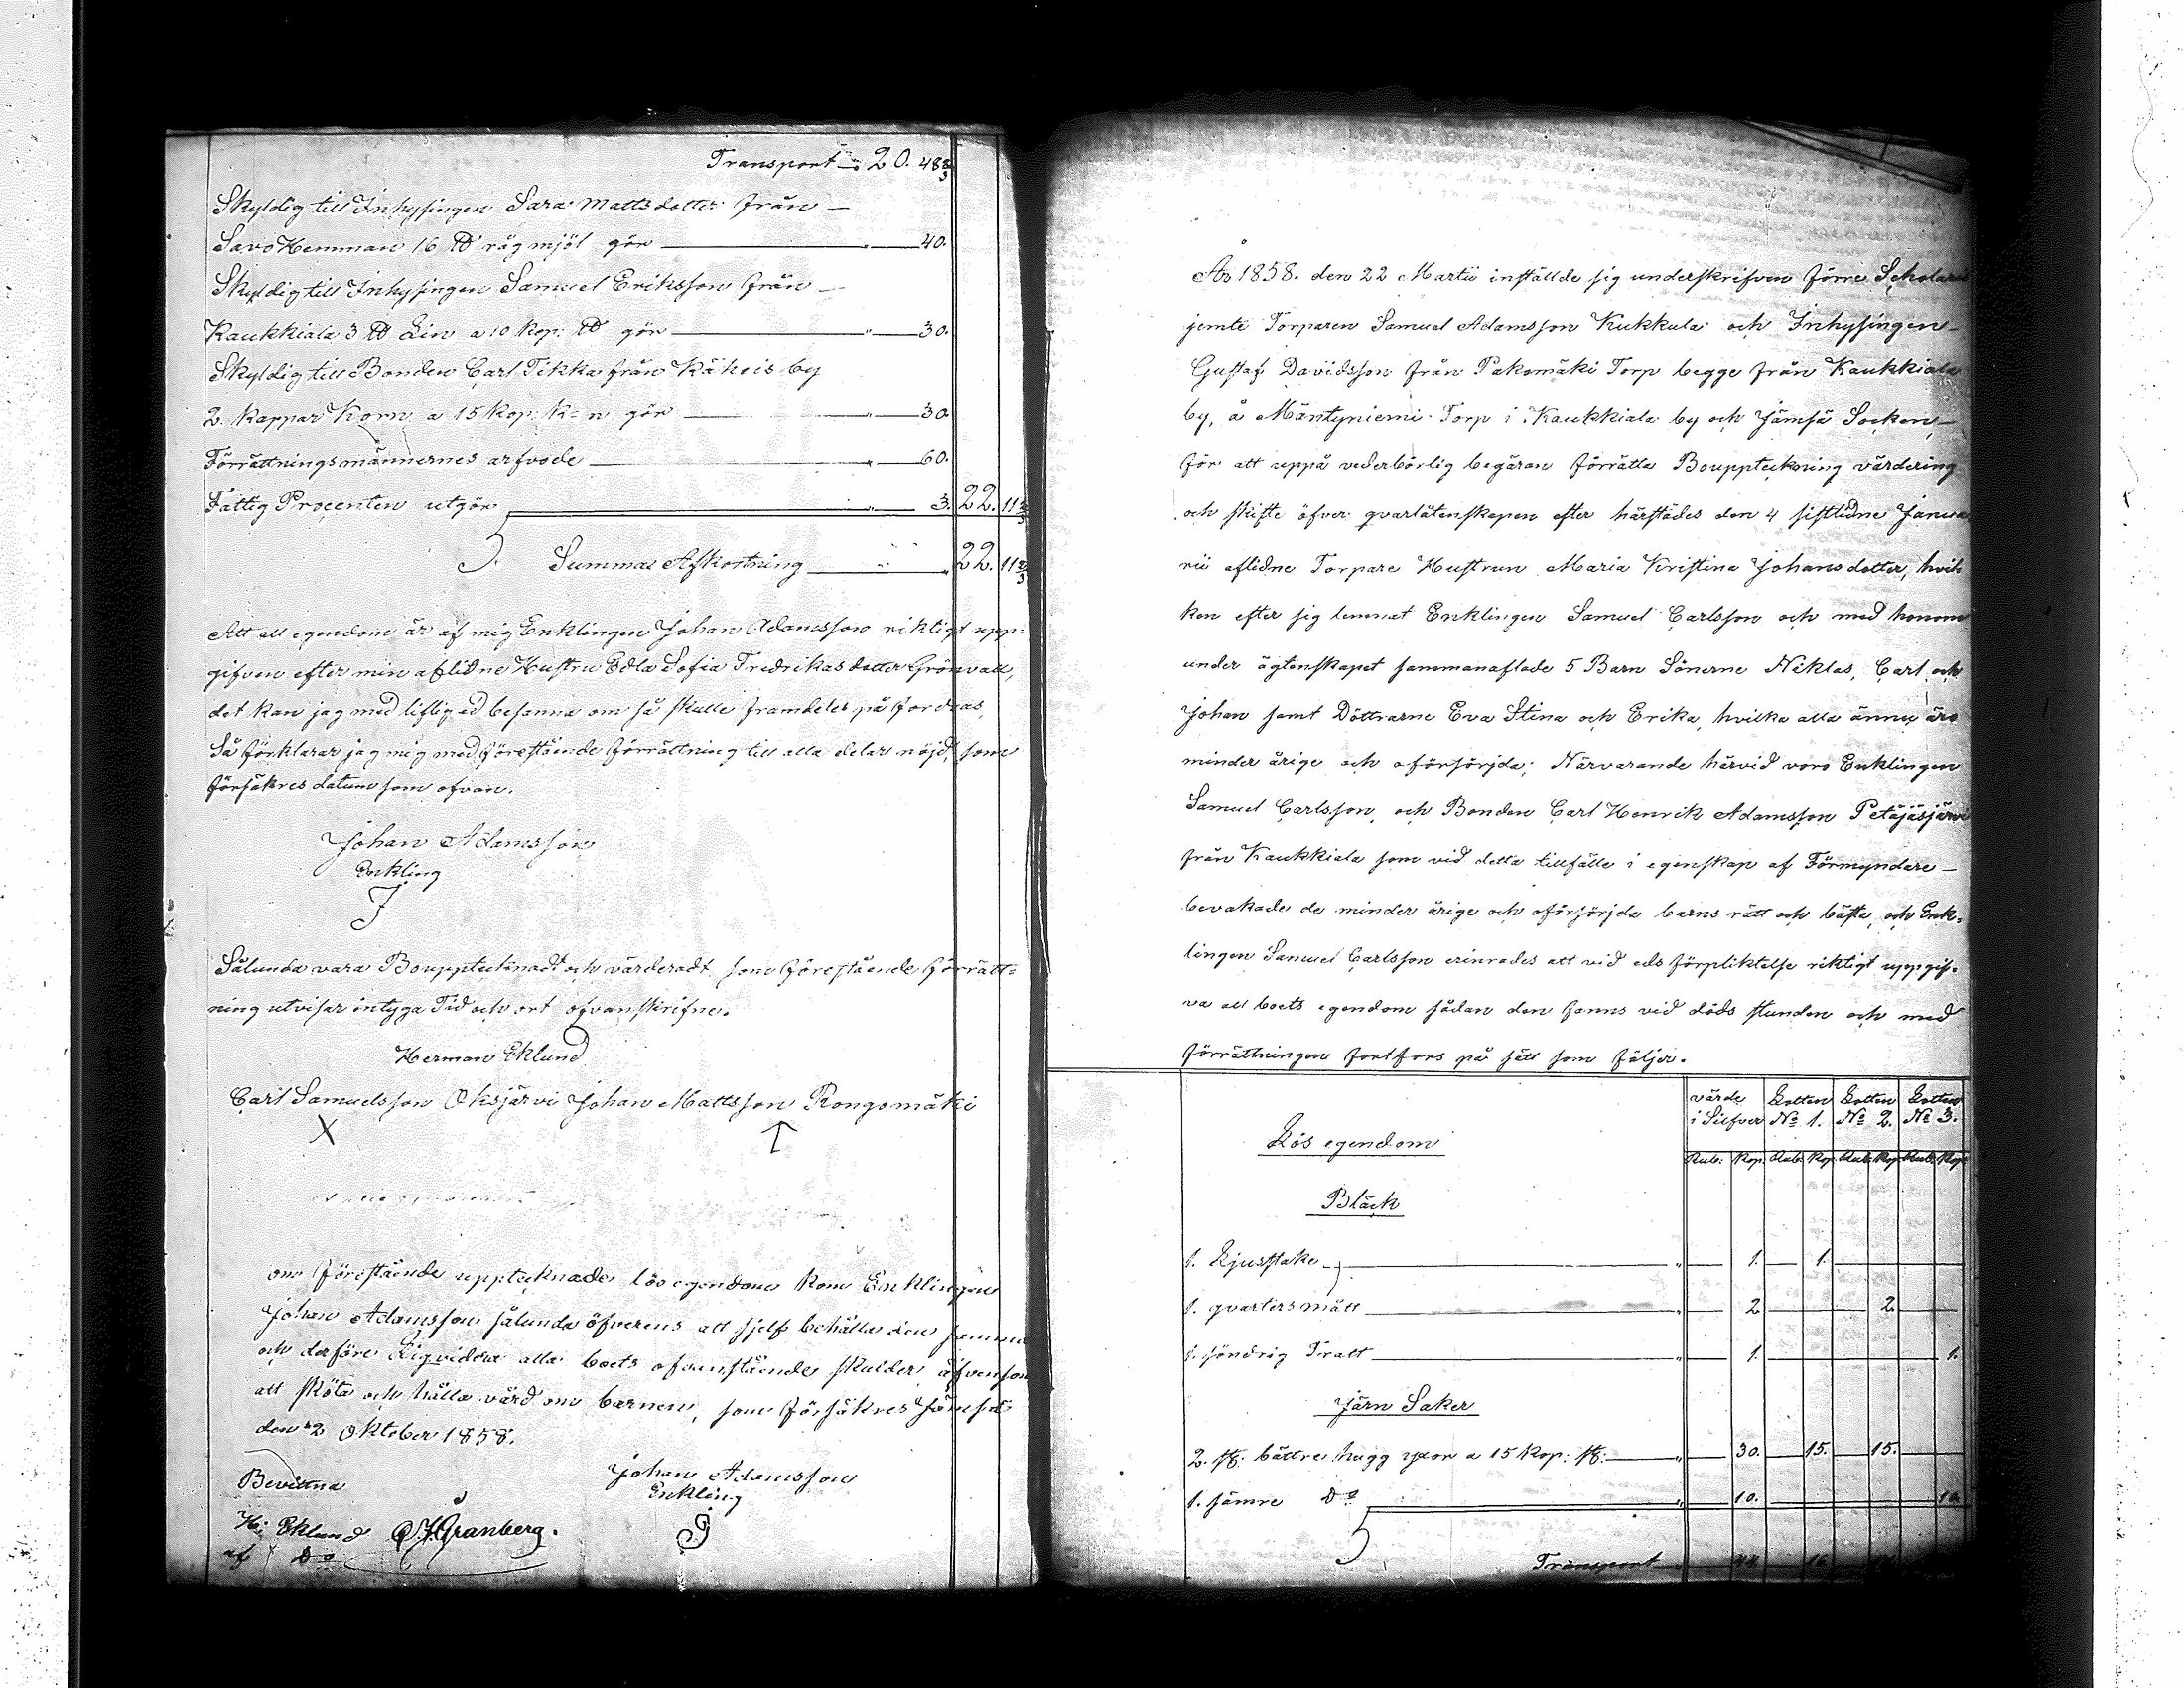 Transport 20. 48 2/3
Skyldig till Inhysingen Sara Mattsdotter från —
Savo Hemman 16 ℔ råg mjöl gör — " — 40.
Skyldig till Inhysingen Samuel Eriksson från —
Kaukkiala 3 ℔ Lin a 10 kop: ℔ gör — " — 30.
Skyldig till Bonden Carl Tikka från Kähois by
2. Kappar Korn a 15 kop: k=n gör — " — 30
Förrättningsmännernes arfvode — " — 60.
Fattig Procenten utgör — " — 3. 22. 11 2/3
Summa Afkortning — " 22. 11 2/3
Att all egendom är af mig Enklingen Johan Adamsson riktigt upp-
gifven efter min aflidne Hustru Edla Sofia Fredrikasdotter Grönvall,
det kan jag med liflig ed besanna om så skulle framdeles på fordras,
Så förklarar jag mig med förestående förrättning till alla delar nöjd, som
försäkres datum som ofvan.
Johan Adamsson
Enkling
Sålunda vara Bouppteknadt och värderadt som förestående förrätt=
ning utvisar intyga Tid och ort ofvanskrifne.
Herman Eklund
Carl Samuelsson Oksjärvi Johan Mattsson Rongomäki
om förestående upptecknade lös egendom kom Enklingen
Johan Adamsson sålunda öfverens att sjelf behålla den samma
och derföre Liqvidera alla boets ofvanstående skulder äfvensom
att sköta och hålla vård om barnen, som försäkres Jämsä
den 2 Oktober 1858.
Bevittna
Johan Adamsson
Enkling
H: Eklund
Granberg.
af Do
År 1858. den 22 Martii inställde sig underskrifven förre Scholaren
jemte Torparen Samuel Adamsson Kukkula och Inhysingen
Gustaf Davidsson från Pakomäki Torp begge från Kaukkiala
by, å Mäntyniemi Torp i Kaukkiala by och Jämsä Socken,
för att uppå vederbörlig begäran förrätta Bouppteckning värdering
och skifte öfver qvarlåtenskapen efter härstädes den 4 sistlidne Janua
rii aflidne Torpare Hustrun Maria Kristina Johansdotter, hvil
ken efter sig lemnat Enklingen Samuel Carlsson och med honom
under ägtenskapet sammanaflade 5 Barn Sönerne Niklas, Carl och
Johan samt Döttrarne Eva Stina och Erika, hvilka alla ännu äro
minder årige och oförsörjda; Närvarande härvid voro Enklingen
Samuel Carlsson, och Bonden Carl Henrik Adamsson Petäjäsjärvi
från Kaukkiala som vid detta tillfälle i egenskap af Förmyndare —
bevakade de minder årige och oförsörjda barns rätt och bästa, och Enk=
lingen Samuel Carlsson erinrades att vid eds förpliktelse riktigt uppgif-
va all boets egendom sådan den fanns vid döds stunden och med
förrättningen fortfors på sätt som följer.
värde i Silfver Lotten No 1. Lotten No 2. Lotten No 3.
Rub: Kop. Rub: Kop Rub: Kop Rub: Kop
Lös egendom
Bläck
1. Ljusstake — " — 1. — 1.
1. qvartersmått — " — 2 — 2
1. söndrig Tratt — " — 1. — 1.
Järn Saker
2. st: bättre hugg yxor a 15 kop: st: — " — 30. — 15. — 15.
1. sämre Do — " — 10. — 10
Transport